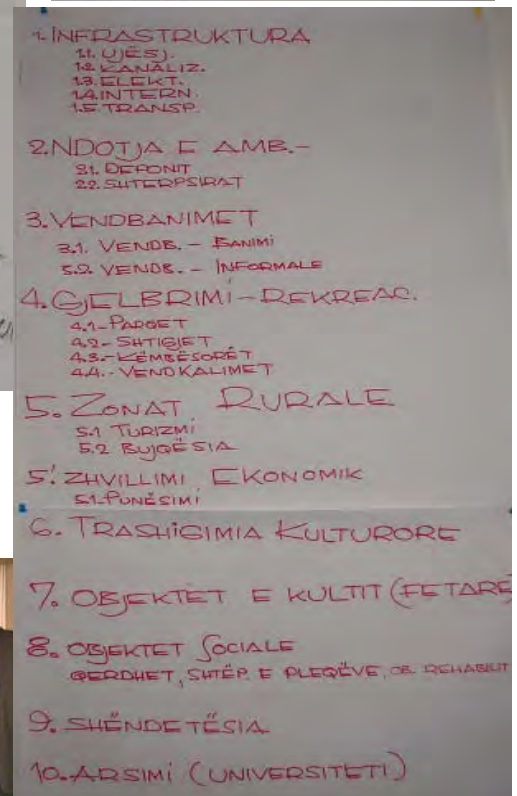 1. INFRASTRUKTURA
1.1. UJËSJ.
1.2. KANALIZ.
1.3. ELEKT.
1.4. INTERN.
1.5 TRANSP.
2. NDOTJA E AMB.-
2.1. DEPONIT
2.2. SHTERPSIRAT
3. VENDBANIMET
3.1. VENDB. - BANIMI
5.2. VENDB. - INFORMALE
4. GJELBRIMI - REKREAC.
4.1-PARQET
4.2-SHTIGJET
4.3.-KËMBËSORËT
4.4.-VENDKALIMET
5. ZONAT RURALE
5.1 TURIZMI
5.2 BUJQËSIA
5.' ZHVILLIMI EKONOMIK
5.1-PUNËSIMI
6. TRASHIGIMIA KULTURORE
7. OBJEKTET E KULTIT (FETARE)
8. OBJEKTET SOCIALE
QERDHET, SHTËP. E PLEQËVE, OB. REHABILIT
9. SHËNDETËSIA
10. ARSIMI (UNIVERSITETI)